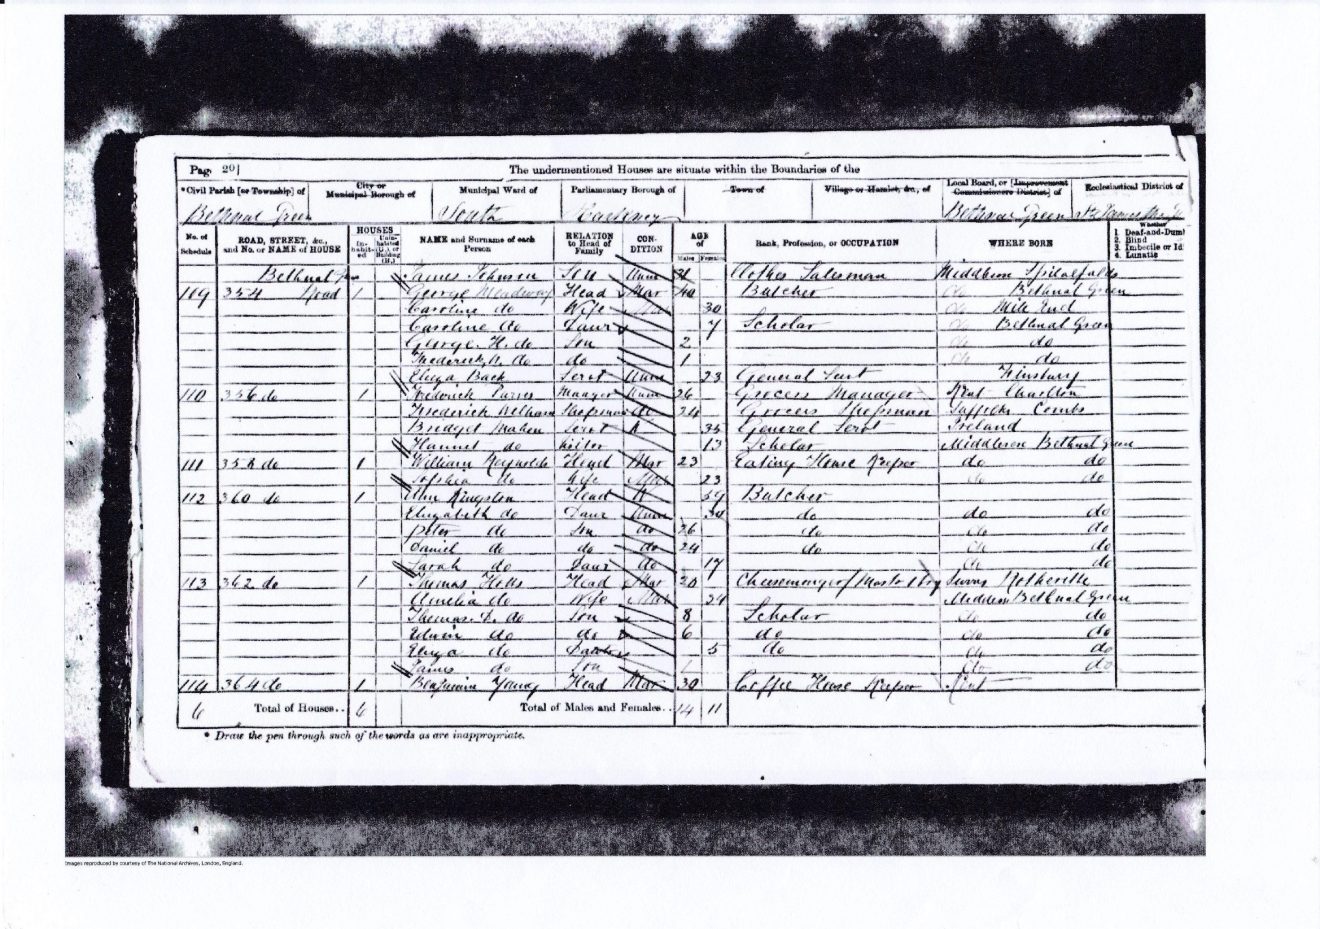 Page 20]
The undermentioned Houses are situate within the Boundaries of the
*Civil Parish [or Township] of City or Municipal Borough of Municipal Ward of Parliamentary Borough of Town of Village or Hamlet, &c., of Local Board, or [Improvement Commissioners District] of Ecclesiastical District of
Bethnal Green South Hackney Bethnal Green St James
No. of Schedule ROAD, STREET, &c., and No. or NAME of HOUSE HOUSES Inhabited Uninhabited (U.) or Building (B.) NAME and Surname of each Person RELATION to Head of Family CONDITION AGE of Males Females Rank, Profession, or OCCUPATION WHERE BORN Whether 1. Deaf-and-Dumb 2. Blind 3. Imbecile or Id 4. Lunatic
Bethnal Green James Johnson Son Unm 31 Clothes Salesman Middlesex Spitalfields
109 354 Road 1 George Head Mar 40 Butcher do Bethnal Green
Caroline do Wife Mar 30 do Mile End
Caroline do Daur 7 Scholar do Bethnal Green
George H. do Son 2 do do
Frederick do do 1 do do
Eliza Back Servt Unm 23 General Servt Finsbury
110 356 do 1 Frederick Manager Unm 26 Grocers Manager Kent Charlton
Frederick William Shopman do 24 Grocers Shopman Suffolk Combs
Bridget Mahen Servt 35 General Servt Ireland
Hannet do 13 Scholar Middlesex Bethnal Green
111 358 do 1 William Reynolds Head Mar 23 Eating House Keeper do do
Sophia do Wife Mar 23 do do
112 360 do 1 Ann Kingston Head 59 Butcher
Elizabeth do Daur Unm 30 do do do
Peter do Son do 26 do do do
Daniel do do do 24 do do do
Sarah do Daur do 17 do do
113 362 do 1 Thomas Head Mar 20 Cheesemonger Surrey Rotherhithe
Amelia do Wife Mar 24 Middlesex Bethnal Green
Thomas do Son 8 Scholar do do
Edwin do do 6 do do do
Eliza do 5 do do do
James do Son 1 do do
114 364 do 1 Benjamin Young Head Mar 30 Coffee House Keeper Kent
6 Total of Houses.. 6 Total of Males and Females.. 14 11
* Draw the pen through such of the words as are inappropriate.
Images reproduced by courtesy of The National Archives, London, England.